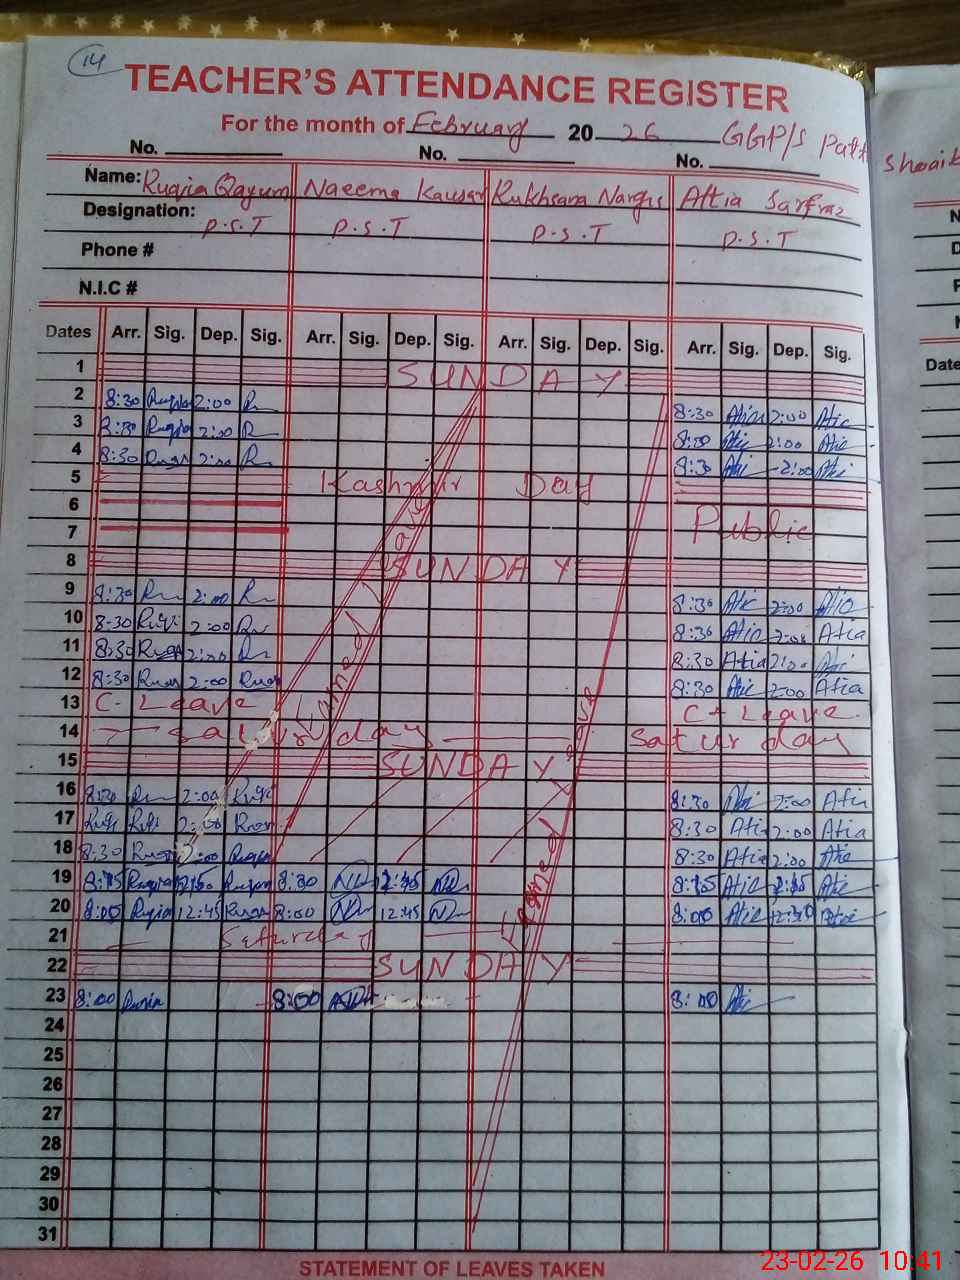 14
TEACHER'S ATTENDANCE REGISTER
For the month of February 2026 GGP/S Patt
No. No. No.
Shoaib
Name: Ruqia Qayum Naeema Kausar Rukhsana Nargis Attia Sarfraz
Designation: P.S.T P.S.T P.S.T P.S.T
Phone #
N.I.C #
Dates Arr. Sig. Dep. Sig. Arr. Sig. Dep. Sig. Arr. Sig. Dep. Sig. Arr. Sig. Dep. Sig.
Date
1 SUNDAY
2 8:30 Ruqia 2:00 R 8:30 Atia 2:00 Atia
3 8:30 Ruqia 2:00 R 8:30 Atia 2:00 Atia
4 8:30 2:00 R 8:30 Atia 2:00 Atia
5 Kashmir Day
6 Public
7
8 SUNDAY
9 8:30 2:00 8:30 Atia 2:00 Atia
10 8:30 2:00 8:30 Atia 2:00 Atia
11 8:30 2:00 8:30 Atia 2:00
12 8:30 2:00 8:30 Atia 2:00 Atia
13 C- Leave C- Leave
14 Saturday Saturday
15 SUNDAY
Earned Leave
Earned Leave
16 8:30 2:00 8:30 2:00 Atia
17 2:00 8:30 Atia 2:00 Atia
18 8:30 2:00 8:30 Atia 2:00 Atia
19 8:15 Ruqia 8:30 8:15 Atia Atia
20 8:00 Ruqia 12:45 8:00 12:45 8:00 Atia 12:30 Atia
21 Saturday
22 SUNDAY
23 8:00 Ruqia 8:00 8:00 Atia
24
25
26
27
28
29
30
31
STATEMENT OF LEAVES TAKEN
23-02-26 10:41